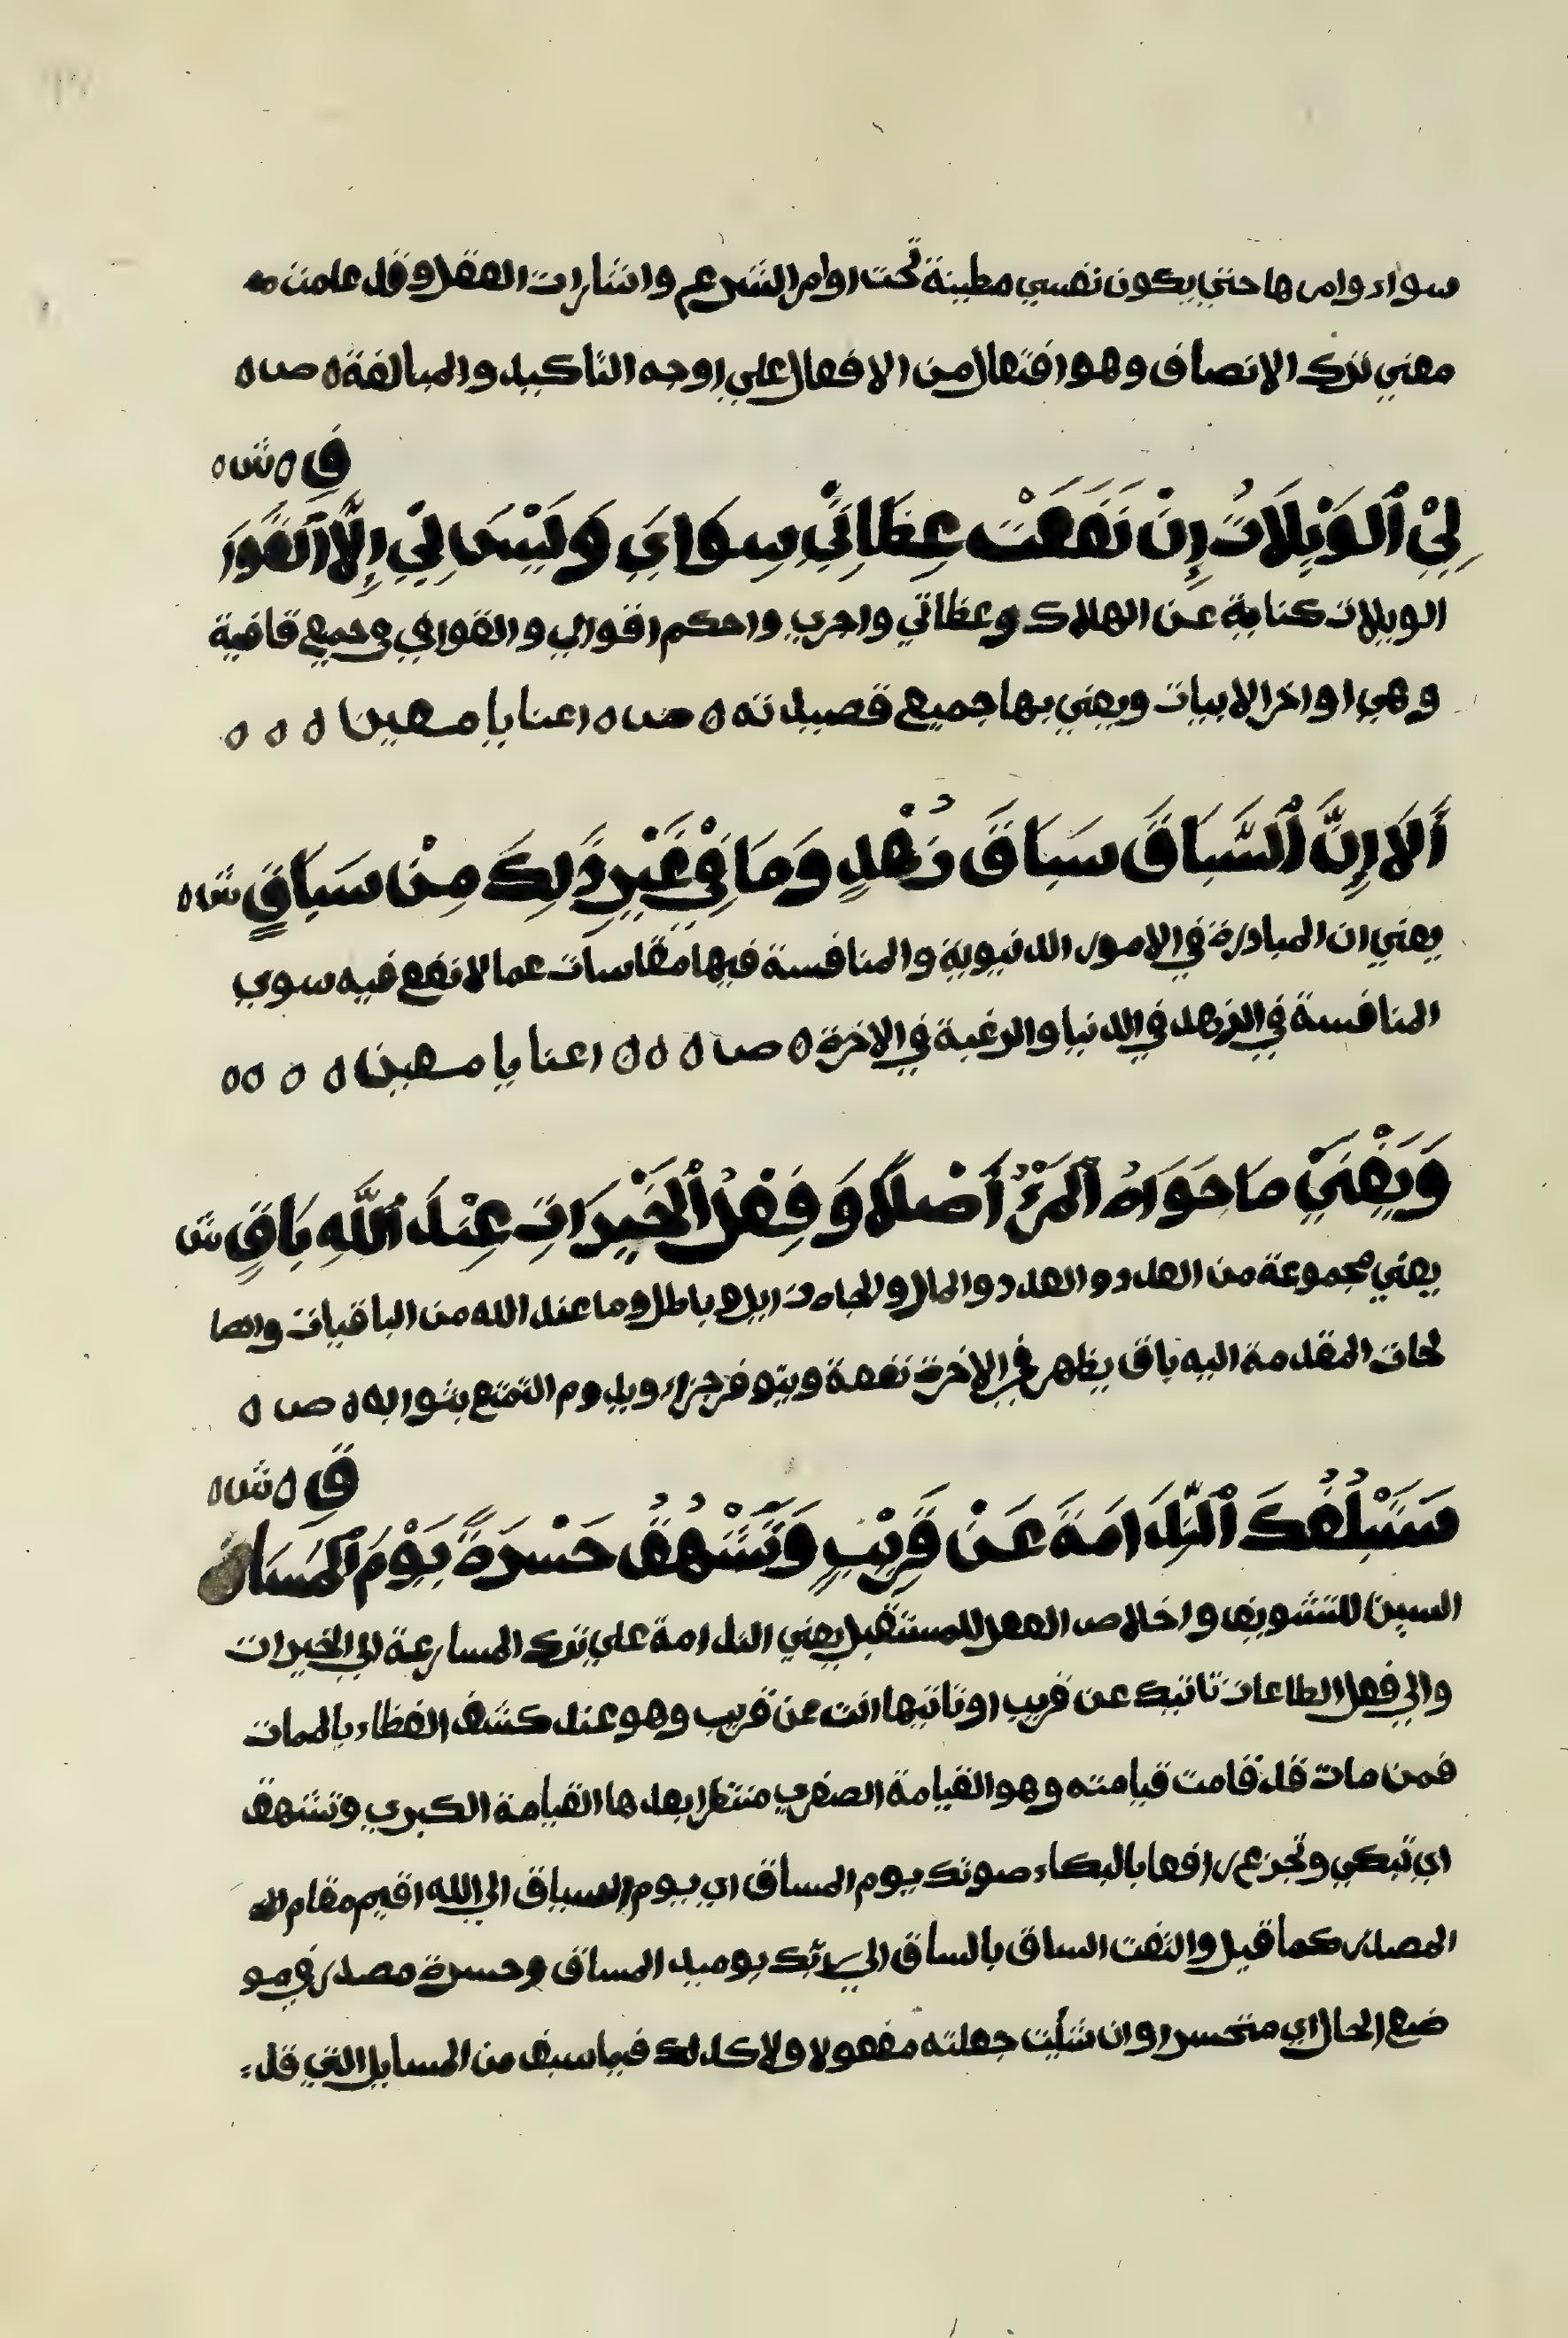 سواء وامرها حتي يكون نفسي مطينة تحت اوامر الشرع واشارات العقل وقد علمت
معني ترك الانصاف وهو افتعال من الافعال علي اوجه التاكيد والمبالغة ه ص ه
في ه ش ه
لِيْ اَلوَيْلَاتُ إِنْ نَفَعَتْ عِظَاتِيْ سِوَايَ وَلَيْسَ لِيْ إِلَّا اَلقَوَا
الويلات كناية عن الهلاك وعظاتي واحري واحكم اقوالي والقوافي جميع قافية
وهي اواخر الابيات ويعني بها جميع قصيدته ه ص ه اعنا يا معين ه ه ه
أَلَا إِنَّ اَلسَّبَاقَ سَبَاقُ زُهْدٍ وَمَا فِيْ غَيْرِ ذَلِكَ مِنْ سَبَاقٍ ش ه
يعني ان المبادرة في الامور الدنيوية والمنافسة فيها مقاسات عما لا نفع فيه سوي
المنافسة في الزهد في الدنيا والرغبة في الاخرة ه ص ه ه ه اعنا يا معين ه ه ه ه
وَيَفْنَيْ مَا حَوَاهُ اَلمَرْءُ أَصْلًا وَفِعْلُ اَلخَيْرَاتِ عِنْدَ اَللَّهِ بَاقٍ ش
يعني مجموعة من العدد والعدد والمال والجاه زايل باطل وما عند الله من الباقيات والصا
لحات المقدمة اليه باق يظهر في الاخرة نفعة ويتوفر جزاء ويدوم التمتع بثوابه ص ه
ق ه ش ه
سَتَبْلُغُكَ اَلنَّدَامَةُ عَنْ قَرِيْبٍ وَتَشْهَقُ حَسْرَةً يَوْمَ اَلمَسَا
السين للتسويف واخلاص الفعل للمستقبل يعني الندامة علي ترك المسارعة الي الخيرات
والي فعل الطاعات تاتيك عن قريب او تاتيها انت عن قريب وهو عند كشف الغطاء بالممات
فمن مات قد قامت قيامته وهو القيامة الصغري منتظرا بعدها القيامة الكبري وتشهق
اي تبكي وتجزع رافعا بالبكاء صوتك يوم المساق اي يوم السياق الي الله اقيم مقام
المصدر كما قيل والتفت الساق بالساق الي ربك يوميد المساق وحسرة مصدر في مو
ضع الحال اي متحسرا وان شئت جعلته مفعولا ولا كذلك فيما سبق من المسايل التي قد